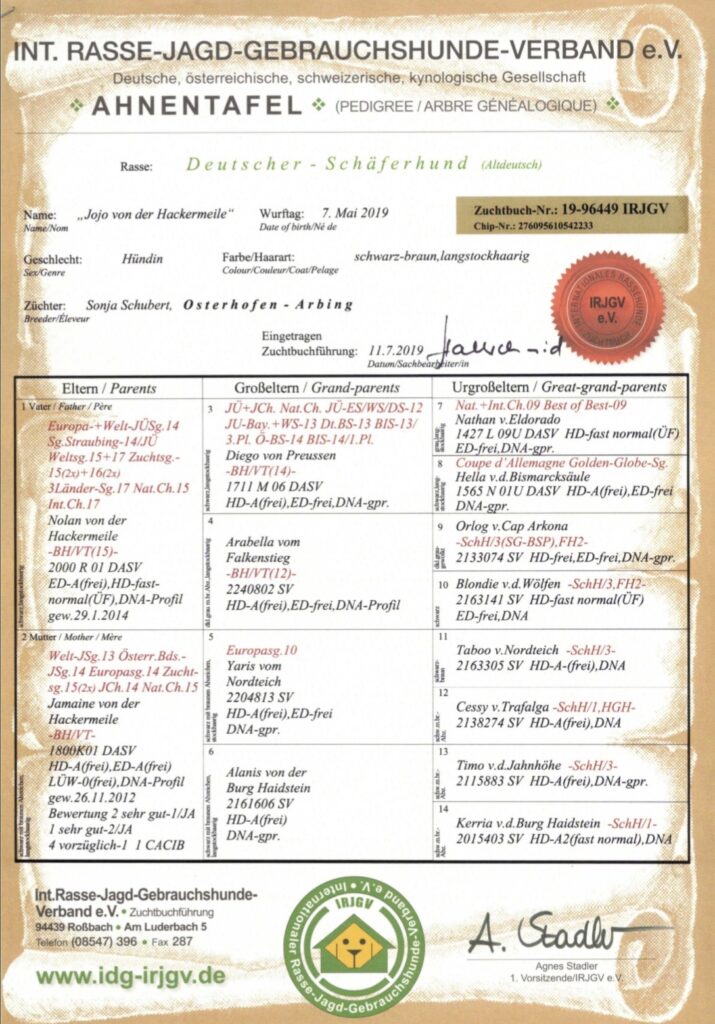 INT. RASSE-JAGD-GEBRAUCHSHUNDE-VERBAND e.V.
Deutsche, österreichische, schweizerische, kynologische Gesellschaft
AHNENTAFEL (PEDIGREE / ARBRE GÉNÉALOGIQUE)
Rasse: Deutscher - Schäferhund (Altdeutsch)
Name: „Jojo von der Hackermeile" Wurftag: 7. Mai 2019
Name/Nom Date of birth/Né de
Zuchtbuch-Nr.: 19-96449 IRJGV
Chip-Nr.: 276095610542233
Geschlecht: Hündin Farbe/Haarart: schwarz-braun,langstockhaarig
Sex/Genre Colour/Couleur/Coat/Pelage
Züchter: Sonja Schubert, Osterhofen - Arbing
Breeder/Éleveur
IRJGV
e.V.
Eingetragen
Zuchtbuchführung: 11.7.2019
Datum/Sachbearbeiter/in
Eltern / Parents
1 Vater / Father / Père
Europa-+Welt-JÜSg.14
Sg.Straubing-14/JÜ
Weltsg.15+17 Zuchtsg.-
15(2x)+16(2x)
3Länder-Sg.17 Nat.Ch.15
Int.Ch.17
Nolan von der
Hackermeile
-BH/VT(15)-
2000 R 01 DASV
ED-A(frei),HD-fast-
normal(ÜF),DNA-Profil
gew.29.1.2014
schwarz,langstockhaarig
2 Mutter / Mother / Mère
Welt-JSg.13 Österr.Bds.-
JSg.14 Europasg.14 Zucht-
sg.15(2x) JCh.14 Nat.Ch.15
Jamaine von der
Hackermeile
-BH/VT-
1800K01 DASV
HD-A(frei),ED-A(frei)
LÜW-0(frei),DNA-Profil
gew.26.11.2012
Bewertung 2 sehr gut-1/JA
1 sehr gut-2/JA
4 vorzüglich-1 1 CACIB
schwarz mit braunen Abzeichen,
langstockhaarig
Großeltern / Grand-parents
3
JÜ+JCh. Nat.Ch. JÜ-ES/WS/DS-12
JU-Bay.+WS-13 Dt.BS-13 BIS-13/
3.Pl. Ö-BS-14 BIS-14/1.Pl.
Diego von Preussen
-BH/VT(14)-
1711 M 06 DASV
HD-A(frei),ED-frei,DNA-gpr.
schwarz,langstockhaarig
4
Arabella vom
Falkenstieg
-BH/VT(12)-
2240802 SV
HD-A(frei),ED-frei,DNA-Profil
dkl.grau m.br.Abz.,langstockhaarig
5
Europasg.10
Yaris vom
Nordteich
2204813 SV
HD-A(frei),ED-frei
DNA-gpr.
schwarz mit braunen Abzeichen,
stockhaarig
6
Alanis von der
Burg Haidstein
2161606 SV
HD-A(frei)
DNA-gpr.
schwarz mit braunen Abzeichen,
langstockhaarig
Urgroßeltern / Great-grand-parents
7
Nat.+Int.Ch.09 Best of Best-09
Nathan v.Eldorado
1427 L 09U DASV HD-fast normal(ÜF)
ED-frei,DNA-gpr.
8
Coupe d'Allemagne Golden-Globe-Sg.
Hella v.d.Bismarcksäule
1565 N 01U DASV HD-A(frei),ED-frei
DNA-gpr.
9
Orlog v.Cap Arkona
-SchH/3(SG-BSP),FH2-
2133074 SV HD-frei,ED-frei,DNA-gpr.
10
Blondie v.d.Wölfen -SchH/3,FH2-
2163141 SV HD-fast normal(ÜF)
ED-frei,DNA
schwarz
11
Taboo v.Nordteich -SchH/3-
2163305 SV HD-A-(frei),DNA
schwarz-
braun
12
Cessy v.Trafalga -SchH/1,HGH-
2138274 SV HD-A(frei),DNA
schw.m.br.-
Abz.
13
Timo v.d.Jahnhöhe -SchH/3-
2115883 SV HD-A(frei),DNA-gpr.
schw.m.br.-
Abz.
14
Kerria v.d.Burg Haidstein -SchH/1-
2015403 SV HD-A2(fast normal),DNA
schw.m.br.-
Abz.
Int.Rasse-Jagd-Gebrauchshunde-
Verband e.V. • Zuchtbuchführung
94439 Roßbach • Am Luderbach 5
Telefon (08547) 396 • Fax 287
www.idg-irjgv.de
IRJGV
Internationaler Rasse-Jagd-Gebrauchshunde-Verband e.V.
A. Stadler
Agnes Stadler
1. Vorsitzende/IRJGV e.V.